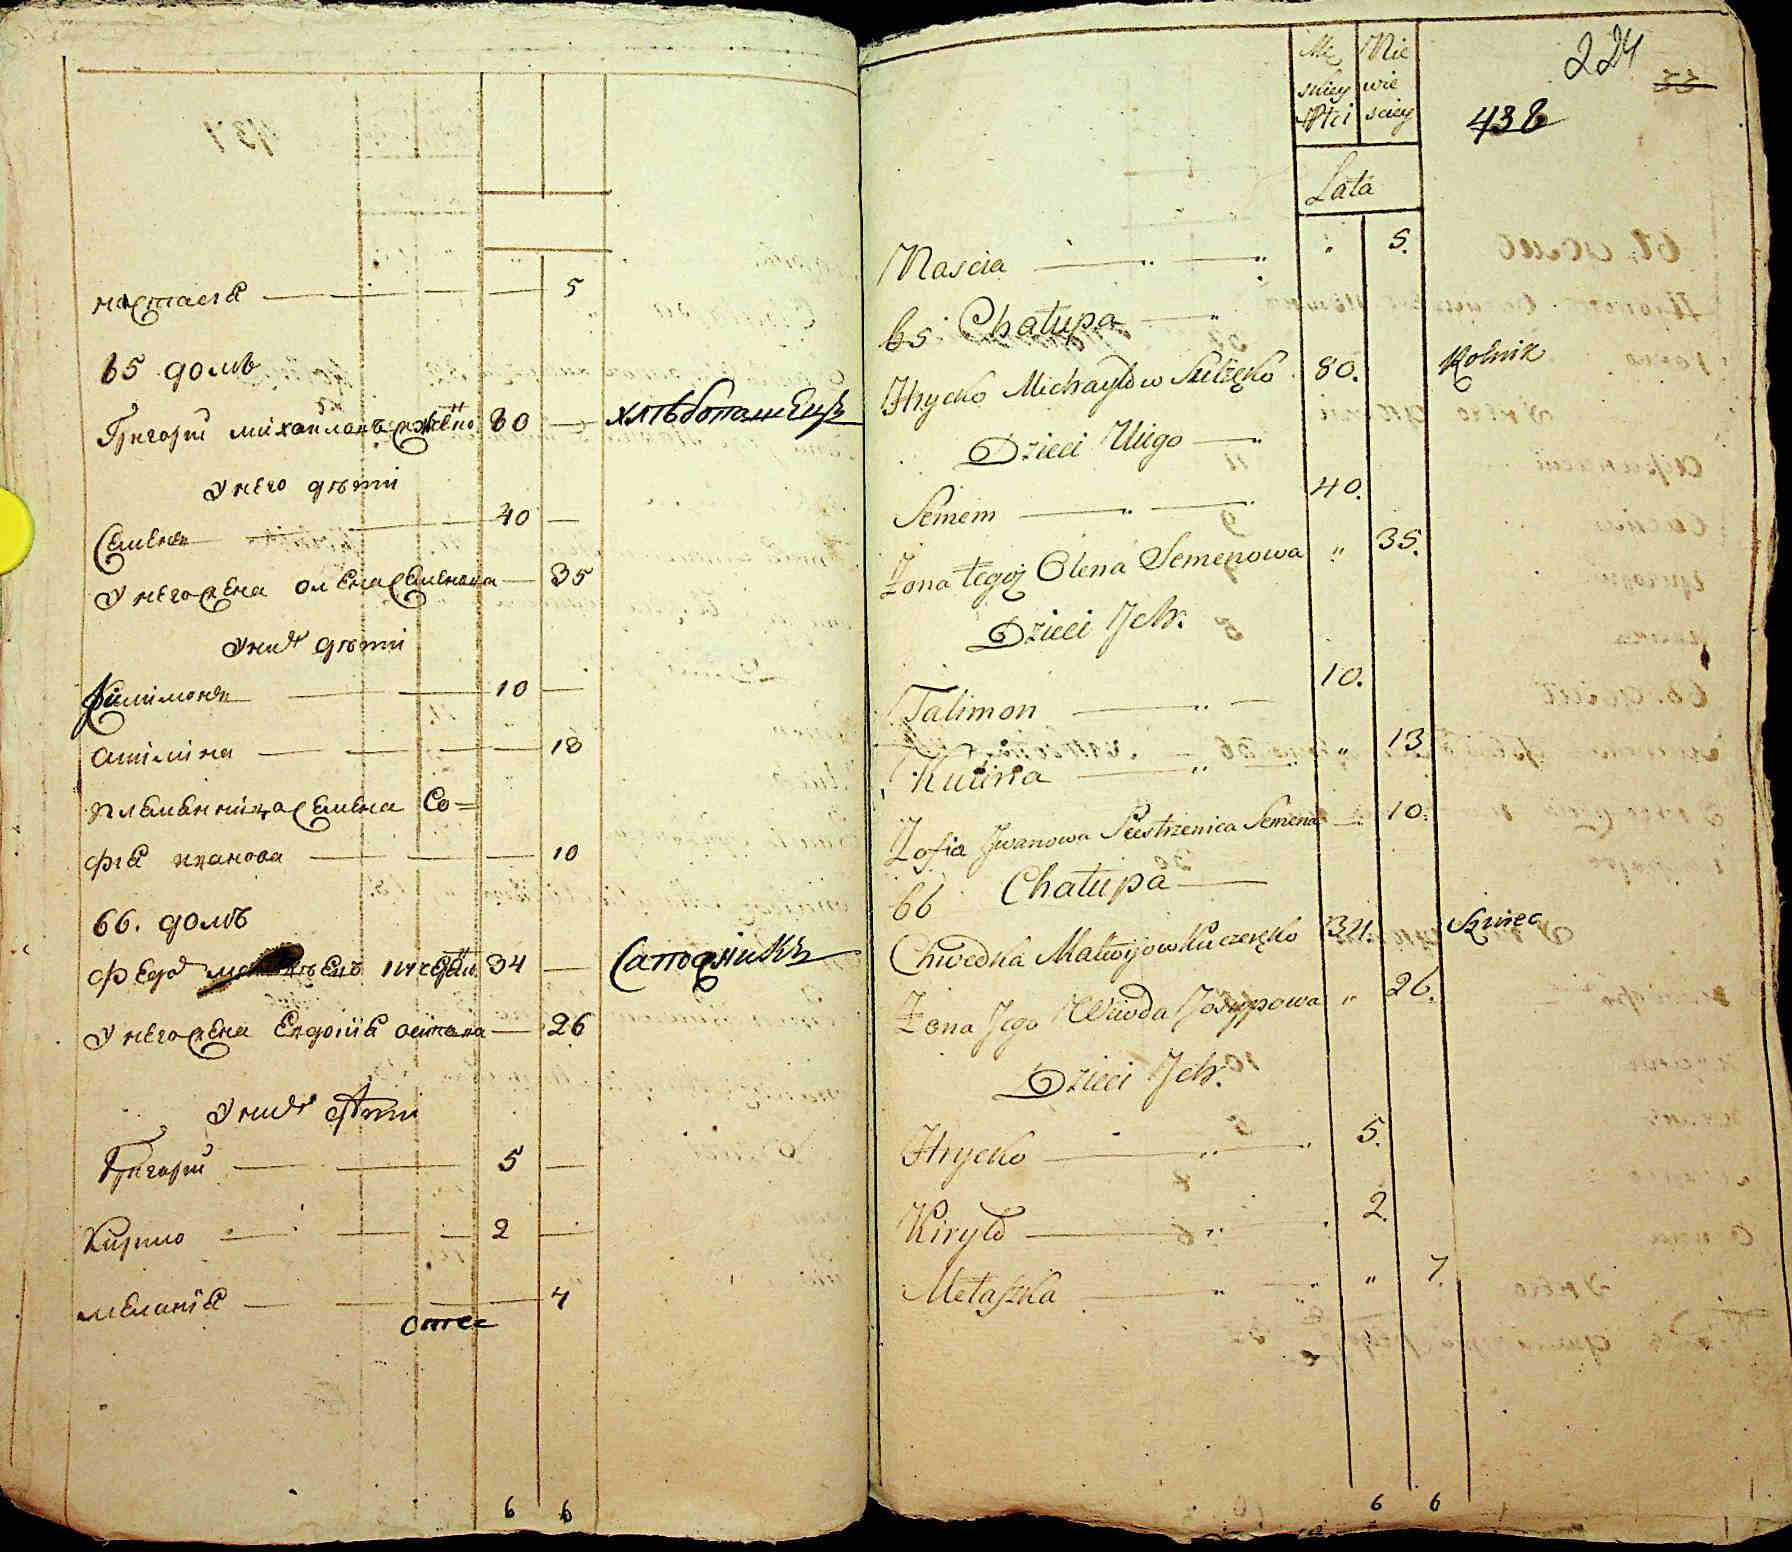 настасиѧ 5
65 домъ
Григорий михаиловъ 80 хлѣбопашецъ
У него дѣти
Семенъ 40
У него жена олена семенова 35
У них дѣти
Филимонъ 10
акилина 13
племѣнница семена Со=
фиѧ иванова 10
66. домъ
Федор 34 Сапожникъ
У него жена Евдокиѧ 26
У них дѣти
Григорий 5
Кирило 2
меланиѧ 7
6 6
224
33
438
Mę skiey Płci
Nie wie sciey
Lata
Nascia " 5.
65 Chałupa
Hrycko Michayłow 80. Rolnik
Dzieci Uiego
Semem 40.
Żona tegoż Olena Semenowa " 35.
Dzieci Ich.
Talimon 10.
Kulina " 13
Zofia Iwanowa Siestrzenica Semena 10.
66 Chałupa
Chwedka Matwijow Kuczeręko 34. Szwiec
Żona Jego Wiwda Josypowa " 26.
Dzieci Ich.
Hrycko 5.
Kiryło 2.
Metaszka " 7.
6 6